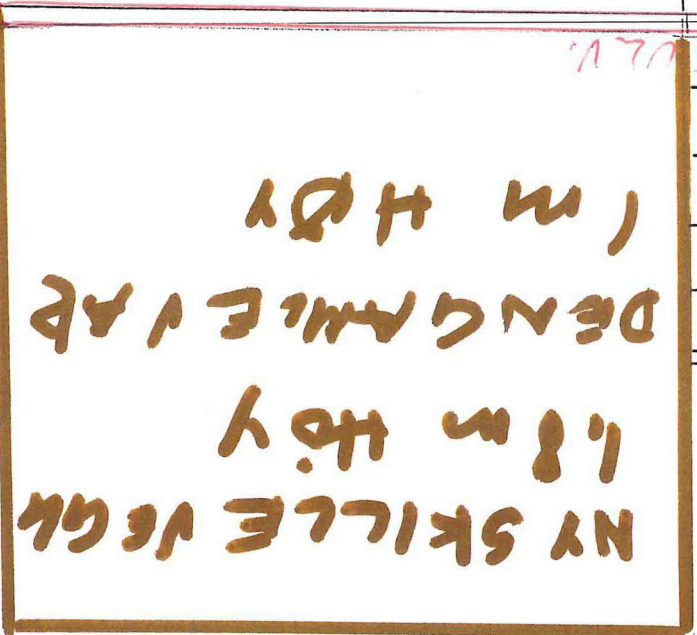 NY SKILLE VEGG
1,8 m HÖY
DEN GAMLE VAR
1 m HØY